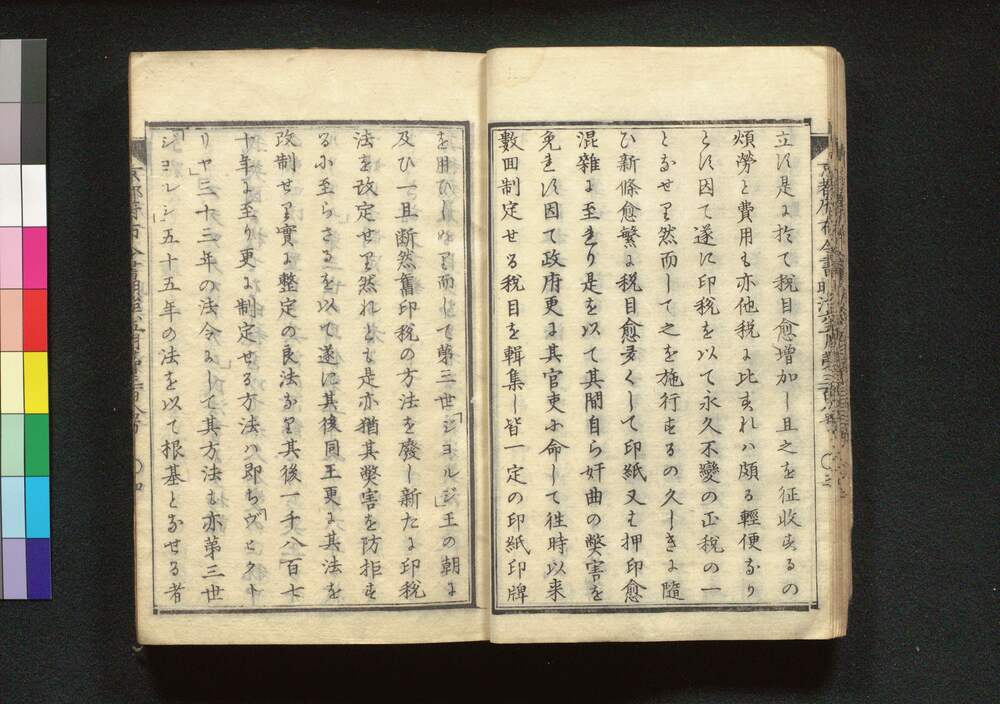 立ス是ニ於て税目愈増加し且之を征收するの
煩勞と費用も亦他税に比すれハ頗る輕便なり
とス因て遂に印税を以て永久不變の正税の一
となせり然而して之を施行するの久しきに隨
ひ新條愈繁に税目愈多くして印紙又は押印愈
混雜に至れり是を以て其間自ら奸曲の弊害を
免れす因て政府更に其官吏に命して往時以来
數囬制定せる税目を輯集し皆一定の印紙印牌
を用ひしめり而して第三世「ジヨルジ」王の朝に
及ひて一且断然舊印税の方法を廢し新たに印税
法を改定せり然れとも是亦猶其弊害を防拒す
るに至らさるを以て遂に其後同王更に其法を
改制せり實に整定の良法なり其後一千八百七
十年に至り更に制定せる方法ハ即ち「ヴヒクト
リヤ」三十三年の法令にして其方法も亦第三世
「ジヨルジ」五十五年の法を以て根基となせる者
京都府布令書明治六年第二百八号